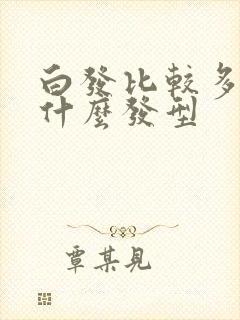 白發比較多
什麼發型
覃某見